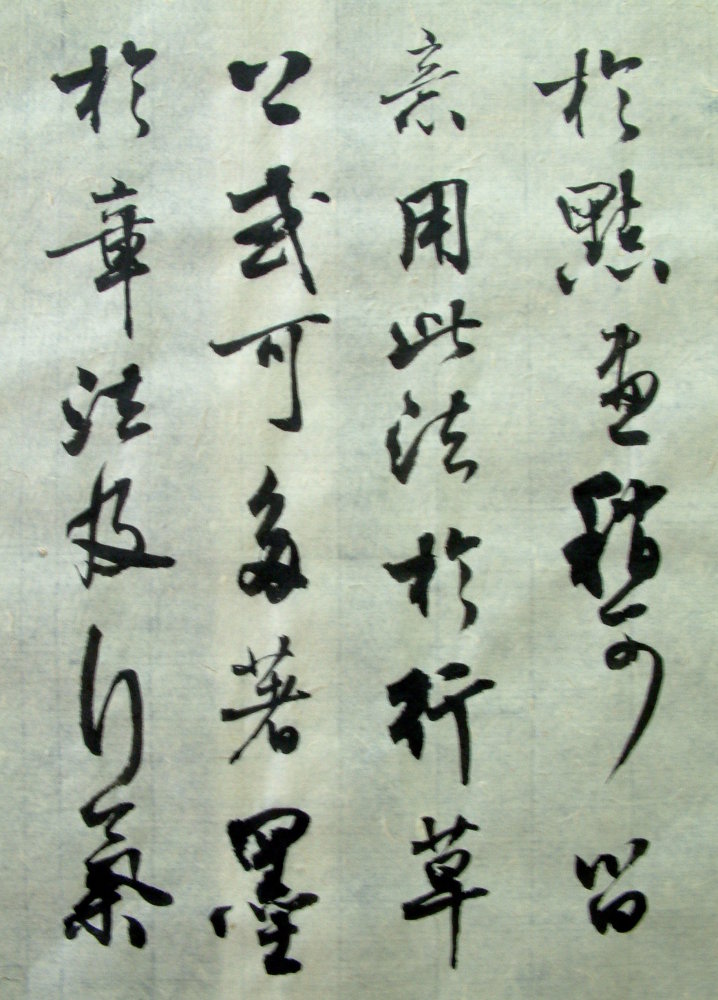 於點畫稍可留
意用此法於行草
上或可多著墨
於章法及行氣